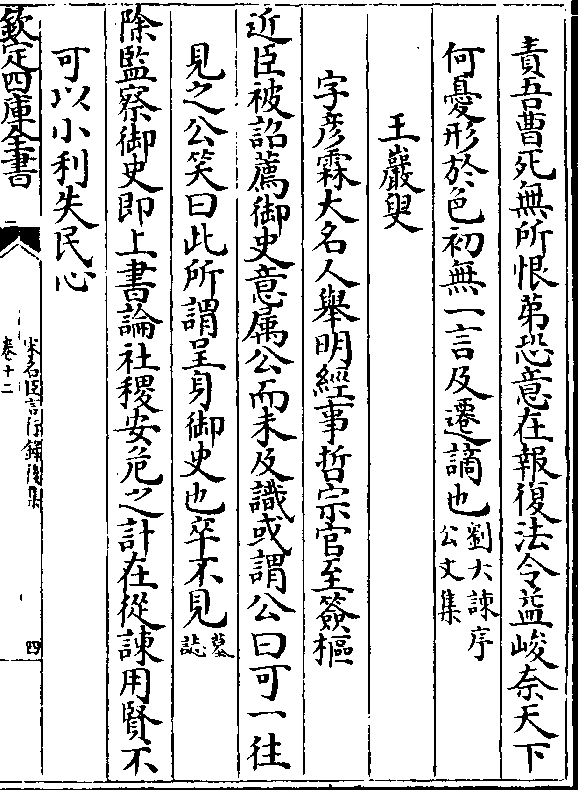 責吾曹死無所恨弟恐意在報復法令益峻奈天下
何憂形於色初無一言及遷謫也劉大諫序公文集
王巖叟
字彥霖大名人舉明經事哲宗官至簽樞
近臣被詔薦御史意属公而未及識或謂公曰可一往
見之公笑曰此所謂呈身御史也卒不見墓誌
除監察御史即上書論社稷安危之計在從諫用賢不
可以小利失民心
欽定四庫全書
宋名臣言行錄後集
卷十二
四